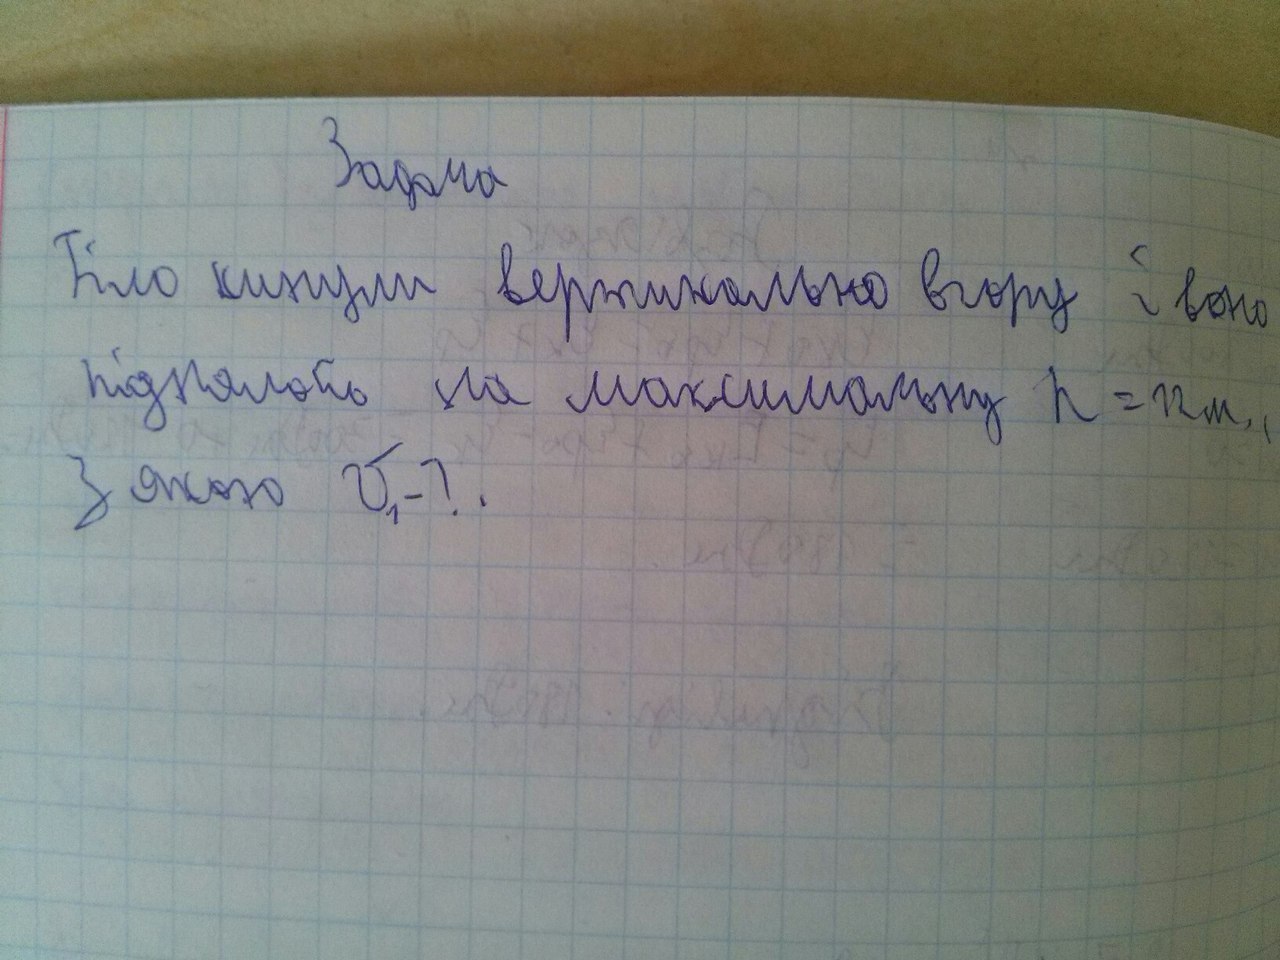 Задача
Тіло кинули вертикально вгору і воно
піднялось на максимальну h = м.,
З якою V₁ - ?.